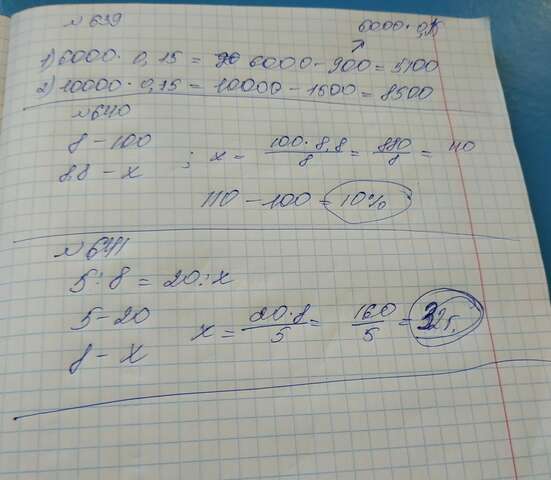 № 639
6000 · 0,15
1) 6000 · 0,15 = 6000 - 900 = 5100
2) 10000 · 0,15 = 10000 - 1500 = 8500
№ 640
8 - 100
8,8 - x ; x = 100 · 8,8 / 8 = 880 / 8 = 110
110 - 100 = 10%
№ 641
5 : 8 = 20 : x
5 - 20
8 - x
x = 20 · 8 / 5 = 160 / 5 = 32г.